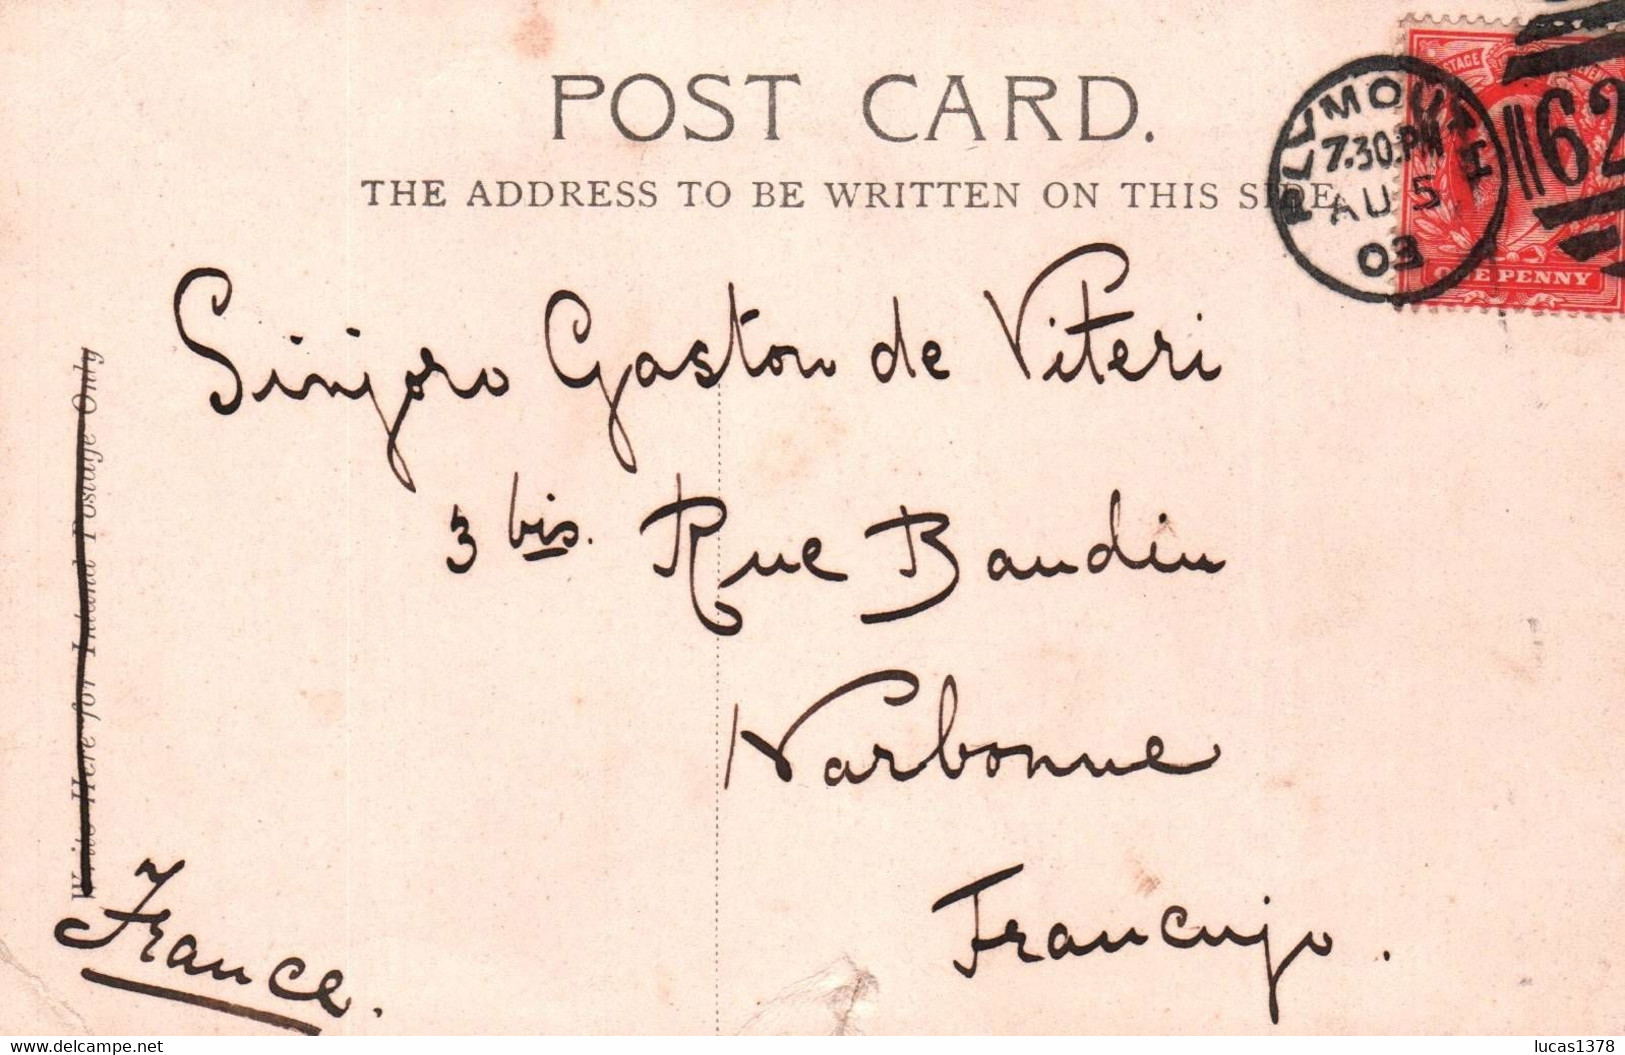 POST CARD.
THE ADDRESS TO BE WRITTEN ON THIS SIDE
PLYMOUTH
7.30.PM
AU 5
03
62
POSTAGE
ONE PENNY
Write Here for Inland Postage Only
Sinjoro Gaston de Viteri
3 bis. Rue Baudin
Narbonne
Francujo.
France.
Delcampe.net
lucas1378